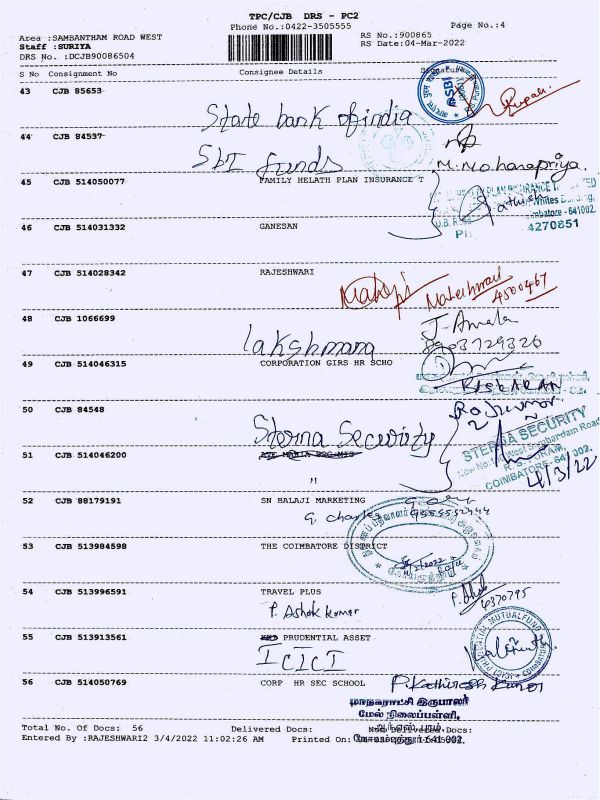 TPC/CJB DRS - PC2
Phone No.:0422-3505555
Page No.:4
Area :SAMBANTHAM ROAD WEST
RS No.:900865
Staff :SURIYA
RS Date:04-Mar-2022
DRS No. :DCJB90086504
S No Consignment No Consignee Details Signature
43 CJB 85653
SBI
Rupali
State bank of india
44 CJB 84537
SBI funds
M. Mohanapriya.
45 CJB 514050077 FAMILY HELATH PLAN INSURANCE T
PLAN INSURANCE T
Whites
Coimbatore - 641002.
4270851
46 CJB 514031332 GANESAN
47 CJB 514028342 RAJESHWARI
4500467
48 CJB 1066699
J. Amala
8903729326
lakshmana
49 CJB 514046315 CORPORATION GIRS HR SCHO
50 CJB 84548
Rajkumar
Sterna Security
STERNA SECURITY
51 CJB 514046200
West Sambandam Road
R. S. PURAM,
COIMBATORE - 641 002.
4/3/22
"
52 CJB 88179191 SN BALAJI MARKETING
G. Charles
53 CJB 513984598 THE COIMBATORE DISTRICT
54 CJB 513996591 TRAVEL PLUS
P. Ashok kumar
55 CJB 513913561 PRUDENTIAL ASSET
PRUDENTIAL MUTUAL FUND
COIMBATORE
ICICI
56 CJB 514050769 CORP HR SEC SCHOOL
மாநகராட்சி இருபாலர்
மேல் நிலைப்பள்ளி,
ஆர்.எஸ். புரம்,
கோயம்புத்தூர்-641 002.
Total No. Of Docs: 56 Delivered Docs: Non Delivered Docs:
Entered By :RAJESHWARI2 3/4/2022 11:02:26 AM Printed On: